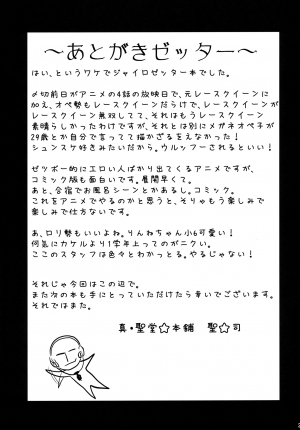 ～あとがきゼッター～
はい、というワケでジャイロゼッター本でした。
〆切前日がアニメの4話の放映日で、元レースクイーンに
加え、オペ勢もレースクイーンだらけで、レースクイーンが
レースクイーン無双してて、それはもうレースクイーン
素晴らしかったわけですが、それとは別にメガネオペ子が
29歳とか自分で言ってて描かざるをえなかった！
シュンスケ好きみたいだから。ウルッフーされるといい！
ゼツボー的にエロい人ばかり出てくるアニメですが、
コミック版も面白いです。展開早くて。
あと、合宿でお風呂シーンとかあるし。コミック。
これをアニメでやるのかと思うと、そりゃもう楽しみで
楽しみで仕方ないです。
あ、ロリ勢もいいよね。りんねちゃん小6可愛い！
何気にカケルより1学年上ってのがニクい。
ここのスタッフは色々とわかっとる。やるじゃない！
それじゃ今回はこの辺で。
また次の本も手にとっていただけたら幸いでございます。
それではまた。
真・聖堂☆本舗　聖☆司